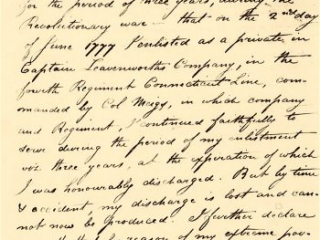 for the period of three years, during the
Revolutionary war — that on the 2nd day
of June 1777 I enlisted as a private in
Captain Leavenworths Company, in the
fourth Regiment Connecticut Line, com-
manded by Col Meigs, in which company
and Regiment, I continued faithfully to
serve during the period of my enlistment
viz three years, at the expiration of which
I was honourably discharged. But by time
& accident, my discharge is lost and can-
not now be produced. I further declare
that by reason of my extreme pov-